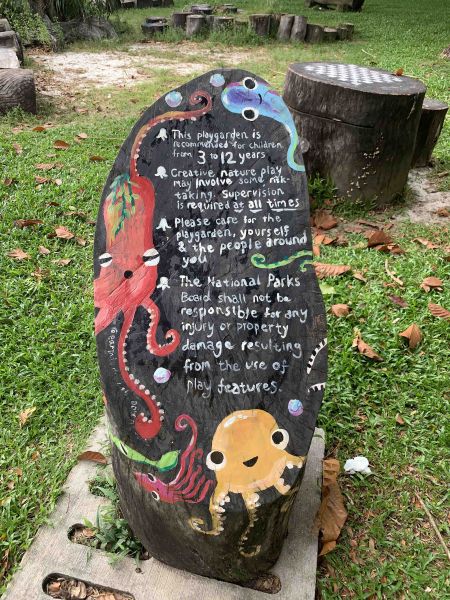 This playgarden is
recommended for children
from 3 to 12 years
Creative nature play
may involve some risk-
taking. Supervision
is required at all times
Please care for the
playgarden, yourself
& the people around
you
The National Parks
Board shall not be
responsible for any
injury or property
damage resulting
from the use of
play features.